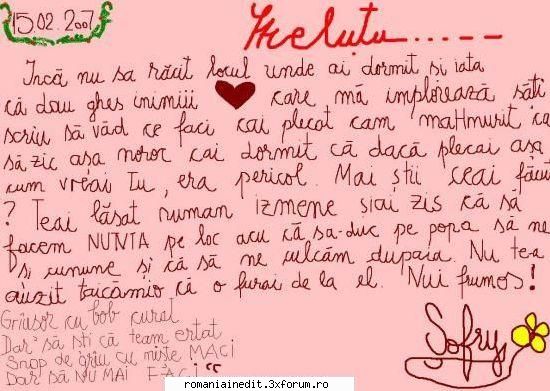 15.02.2007
Helutu.....
Încă nu sa răcit locul unde ai dormit si iata
că dau ghes inimiii care mă implorează săti
scriu să văd ce faci cai plecat cam maHmurit ca
să zic așa noroc cai dormit că dacă plecai așa
cum vreai tu, era pericol. Mai știi ceai făcut
? Teai lăsat numan izmene siai zis că să
facem NUNTA pe loc acu că sa-duc pe popa să ne
si cunune și că să ne culcăm dupaia. Nu te-a
auzit taicămio că o furai de la el. Nui frumos!
Griusor cu bob curat
Dar să sti că team ertat
Snop de griu cu niste MACI
Dar să NU MAI FACI
Sofry
romaniainedit.3xforum.ro